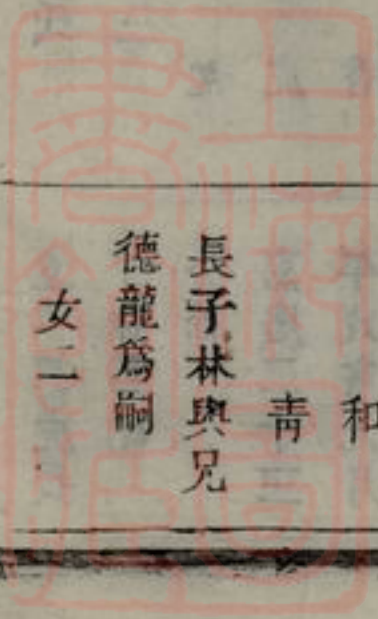 和
青
長子林與兄
德龍爲嗣
女二